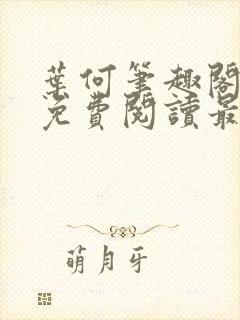 葉何筆趣閣
免費閱讀最
萌月牙